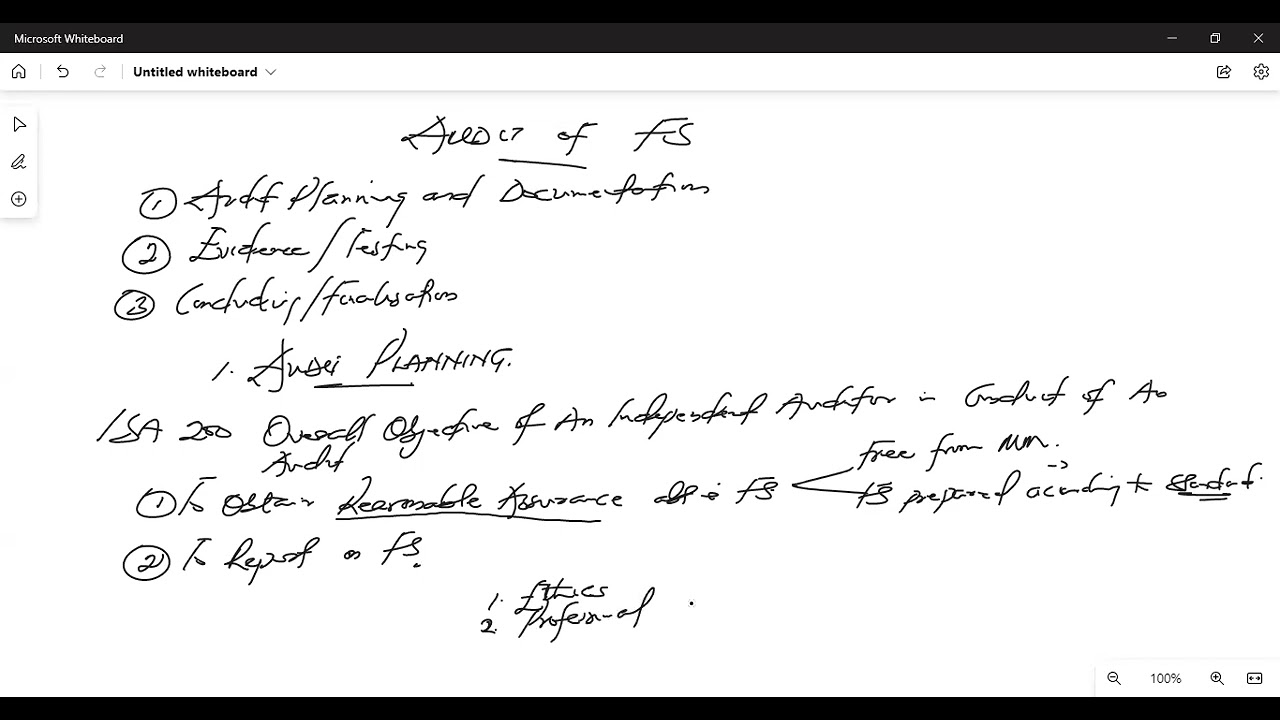 Microsoft Whiteboard
Untitled whiteboard
Audit of FS
1 Audit Planning and Documentation
2 Evidence/Testing
3 Concluding/Finalisation
1. AUDIT PLANNING.
ISA 200 Overall Objective of An Independent Auditor in Conduct of An
Audit
1 To Obtain Reasonable Assurance FS
Free from MM.
FS prepared according to standard.
2 To Report on FS.
1. Ethics
2. Professional
100%